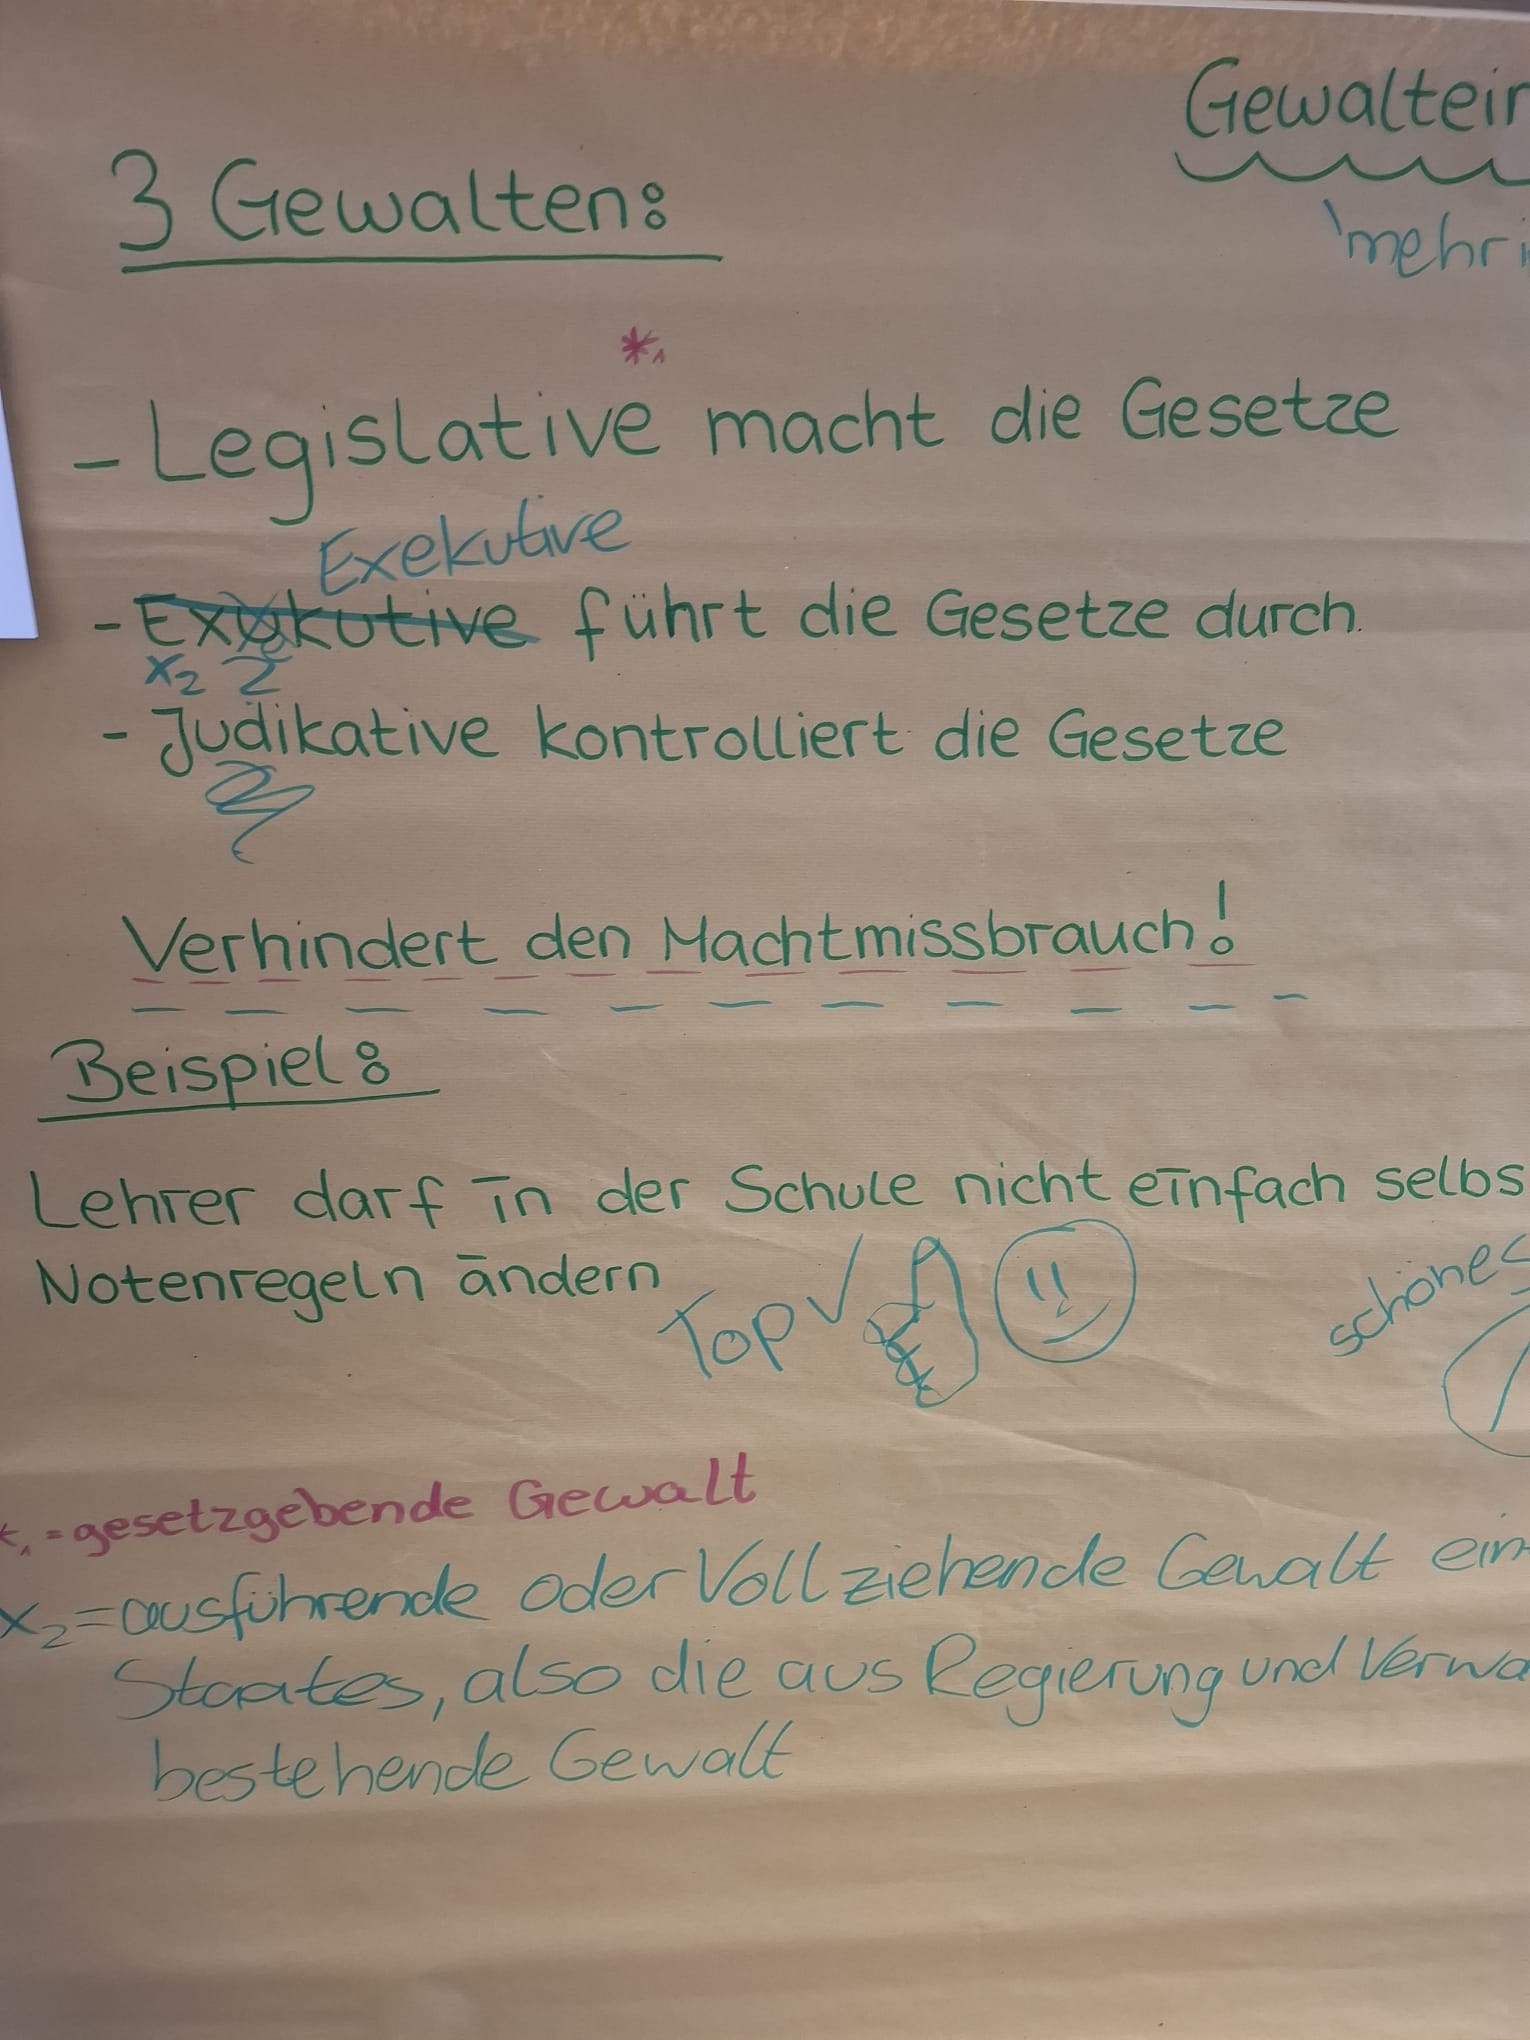 Gewaltein
mehr
3 Gewalten:
*1
- Legislative macht die Gesetze
Exekutive
- Exykutive führt die Gesetze durch.
x2 2
- Judikative kontrolliert die Gesetze
Verhindert den Machtmissbrauch!
Beispiel:
Lehrer darf in der Schule nicht einfach selbs
Notenregeln ändern
Top ✓
schönes
*1 = gesetzgebende Gewalt
x2 = ausführende oder Vollziehende Gewalt ein
Staates, also die aus Regierung und Verwa
bestehende Gewalt